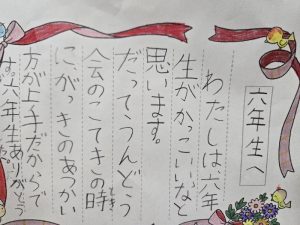 六年生へ
わたしは六年
生がかっこいいなと
思います。
だってうんどう
会のこてきの時
にがっきのあつかい
方が上手だからで
す。六年生ありがとう